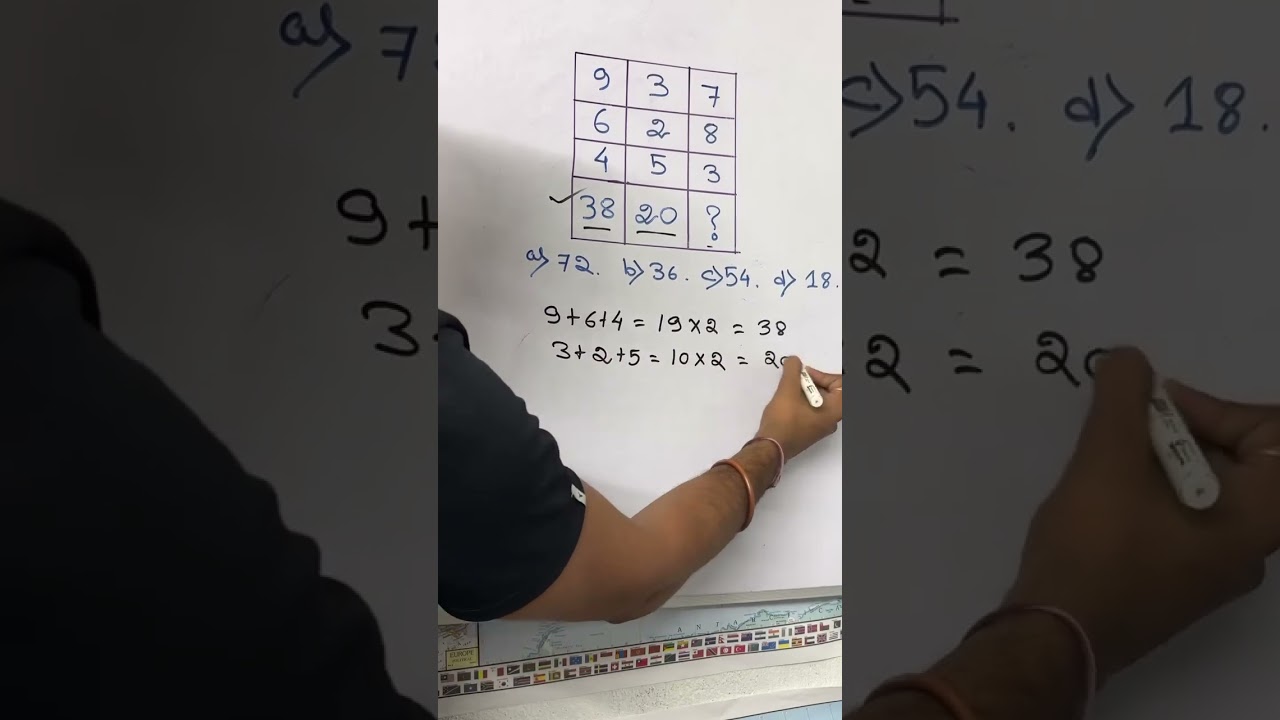 9 3 7
6 2 8
4 5 3
38 20 ?
a) 72. b) 36. c) 54. d) 18.
9+6+4 = 19×2 = 38
3+2+5 = 10×2 = 20
EUROPE